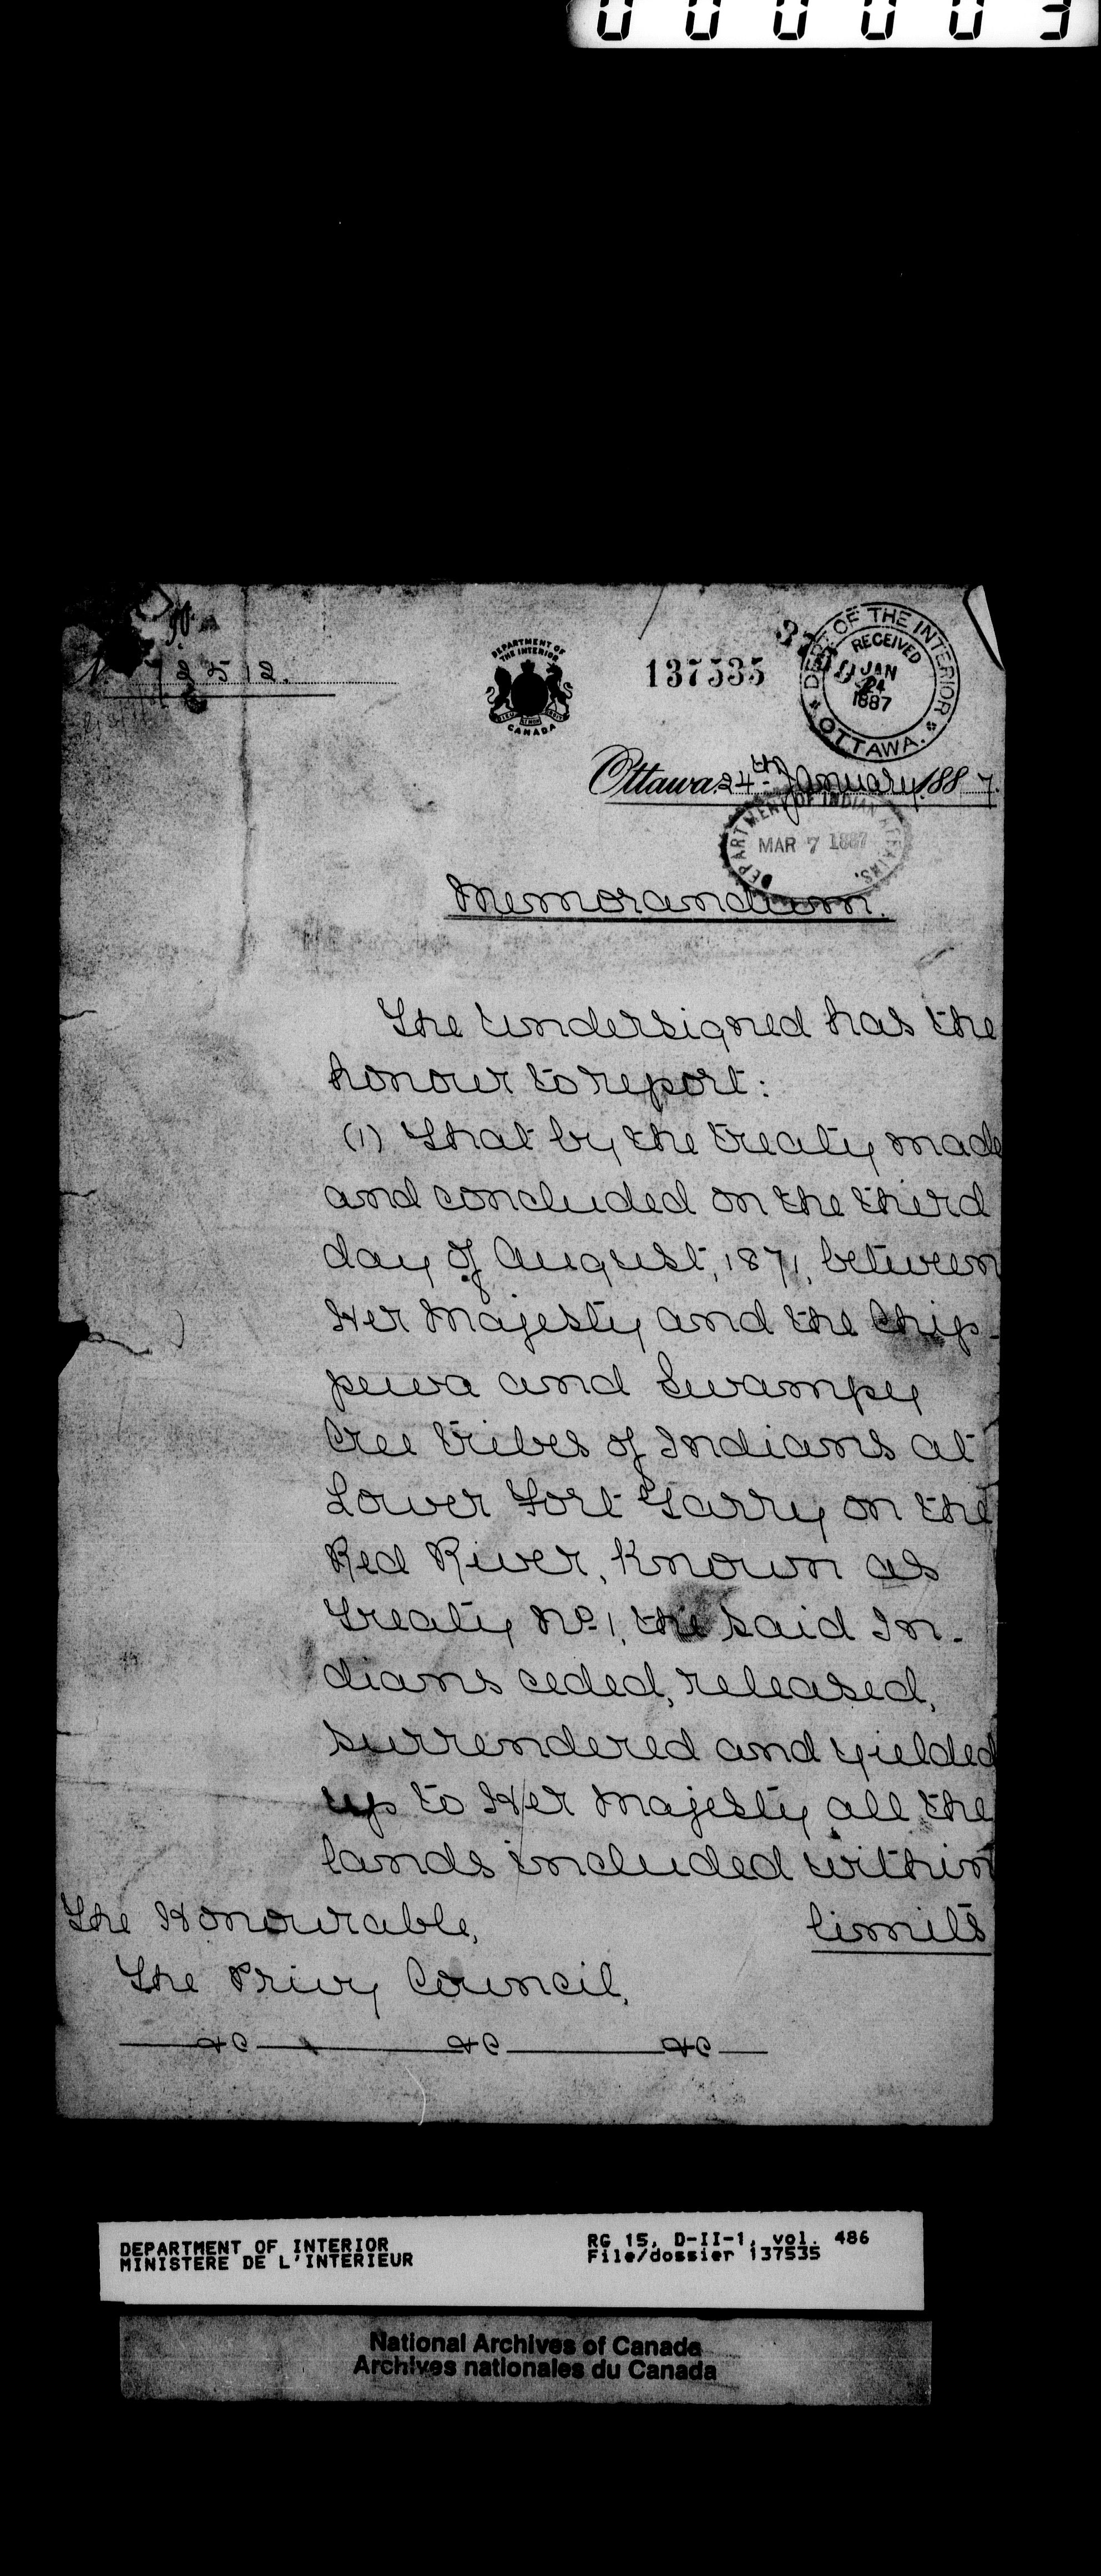 000003
2512.
DEPARTMENT OF
THE INTERIOR
CANADA
137535
DEPT. OF THE INTERIOR
RECEIVED
JAN
24
1887
OTTAWA.
Ottawa, 24th January, 1887.
DEPARTMENT OF INDIAN AFFAIRS.
MAR 7 1887
Memorandum.
The Undersigned has the
honour to report:
(1) That by the treaty made
and concluded on the third
day of August, 1871, between
Her Majesty and the Chip-
pewa and Swampy
Cree tribes of Indians at
Lower Fort Garry on the
Red River, known as
Treaty No. 1, the said In-
dians ceded, released,
surrendered and yielded
up to Her Majesty all the
lands included within
limits
The Honourable,
The Privy Council,
&c &c &c
DEPARTMENT OF INTERIOR
MINISTERE DE L'INTERIEUR
RG 15, D-II-1, vol. 486
File/dossier 137535
National Archives of Canada
Archives nationales du Canada